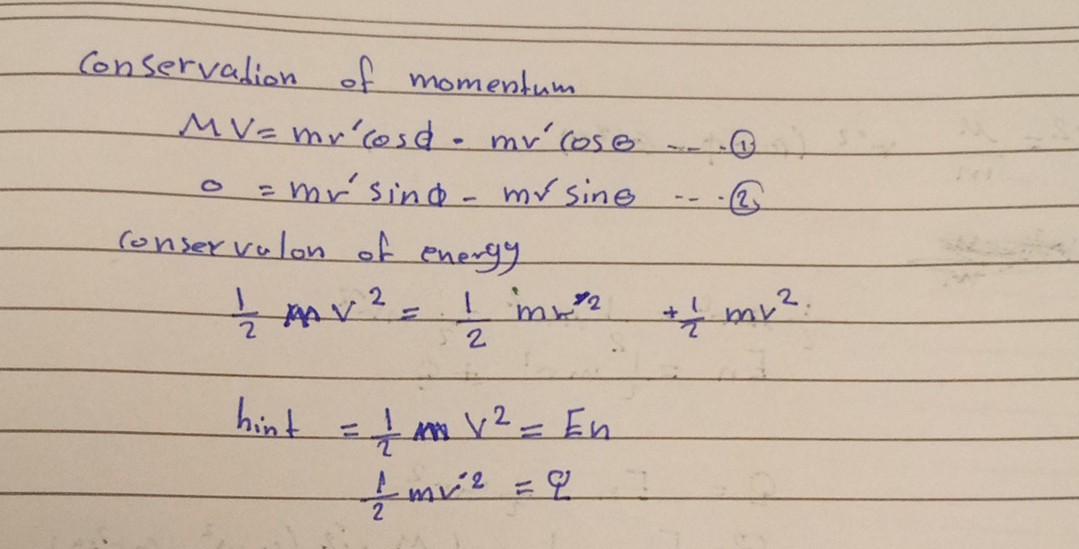 Conservation of momentum
MV = mv' cosϕ - mv' cosθ --- ①
0 = mv' sinϕ - mv sinθ --- ②
conservalon of energy
1/2 m v² = 1/2 mv'² + 1/2 mv²
hint = 1/2 m V² = En
1/2 mv'² =